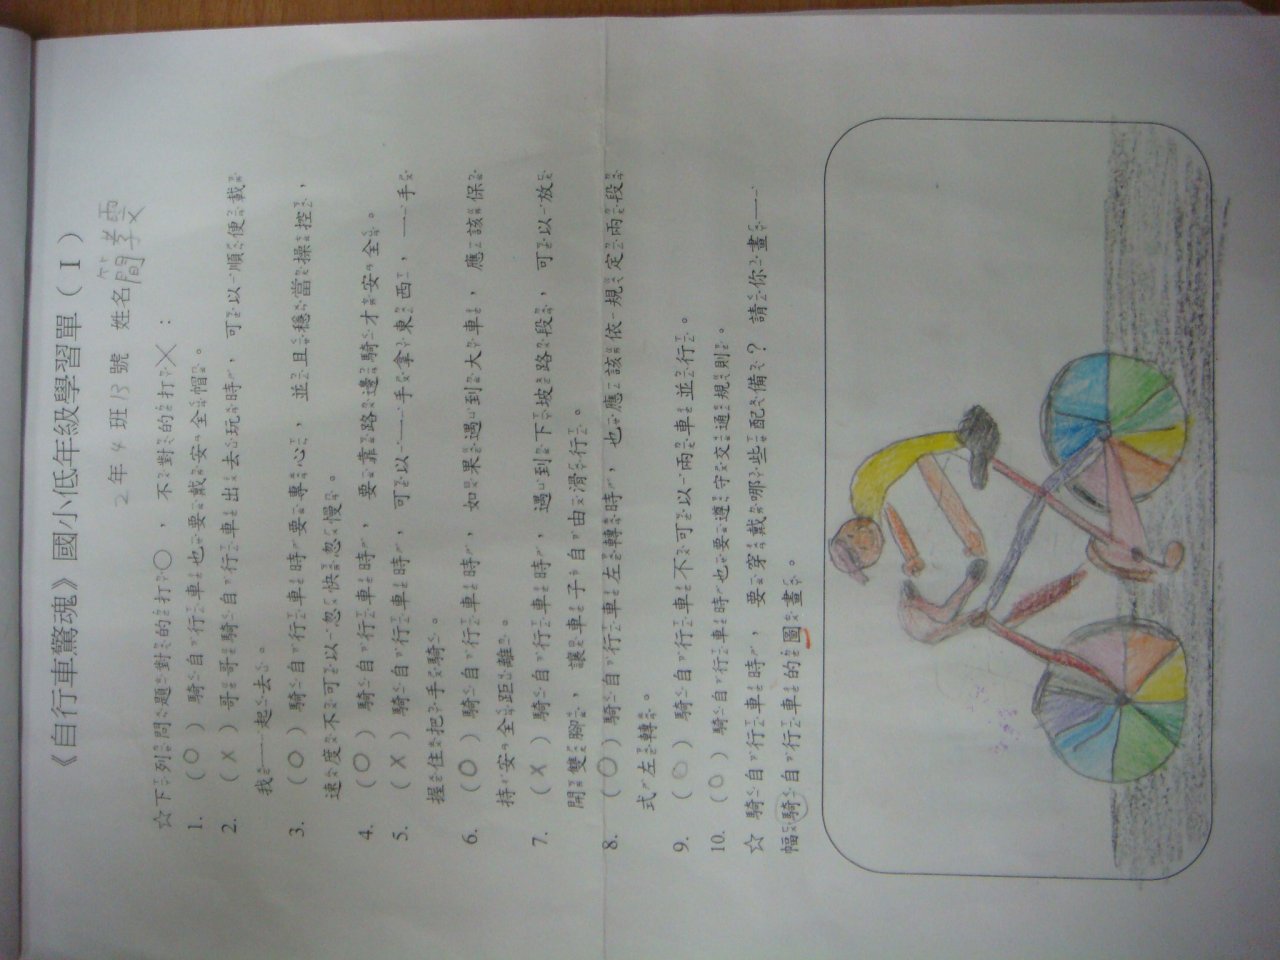 《自行車驚魂》國小低年級學習單（I）
2年4班13號 姓名簡孝雯
☆下列問題對的打○，不對的打╳：
1. （○）騎自行車也要戴安全帽。
2. （X）哥哥騎自行車出去玩時，可以順便載
我一起去。
3. （○）騎自行車時要專心，並且穩當操控，
速度不可以忽快忽慢。
4. （○）騎自行車時，要靠路邊騎才安全。
5. （X）騎自行車時，可以一手拿東西，一手
握住把手騎。
6. （○）騎自行車時，如果遇到大車，應該保
持安全距離。
7. （X）騎自行車時，遇到下坡路段，可以放
開雙腳，讓車子自由滑行。
8. （○）騎自行車左轉時，也應該依規定兩段
式左轉。
9. （○）騎自行車不可以兩車並行。
10. （○）騎自行車時也要遵守交通規則。
☆ 騎自行車時，要穿戴哪些配備？請你畫一
幅騎自行車的圖畫。